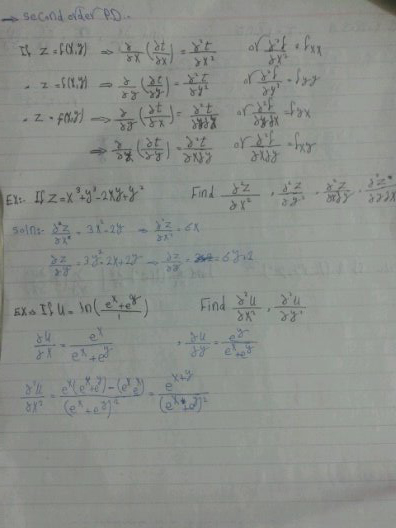 → second order P.D...
If z = f(x,y) ⇒ ∂/∂x (∂t/∂x) = ∂²t/∂x² or ∂²f/∂x² = fxx
" z = f(x,y) ⇒ ∂/∂y (∂t/∂y) = ∂²t/∂y² or ∂²f/∂y² = fyy
" z = f(x,y) ⇒ ∂/∂y (∂t/∂x) = ∂²t/∂y∂x or ∂²f/∂y∂x = fyx
⇒ ∂/∂x (∂t/∂y) = ∂²t/∂x∂y or ∂²f/∂x∂y = fxy
EX:. If z = x³+y³-2xy+y² Find ∂²z/∂x² , ∂²z/∂y² , ∂²z/∂x∂y , ∂²z/∂y∂x
soln:. = 3x²-2y ⇒ ∂²z/∂x² = 6x
∂z/∂y = 3y²-2x+2y ⇒ = 6y+2
EX:. If U = ln(e^x+e^y / 1) Find ∂²u/∂x² , ∂²u/∂y²
∂u/∂x = e^x / e^x+e^y , ∂u/∂y = e^y / e^x+e^y
∂²u/∂x² = e^x(e^x+e^y)-(e^x e^x) / (e^x+e^y)² = e^x+y / (e^x+e^y)²